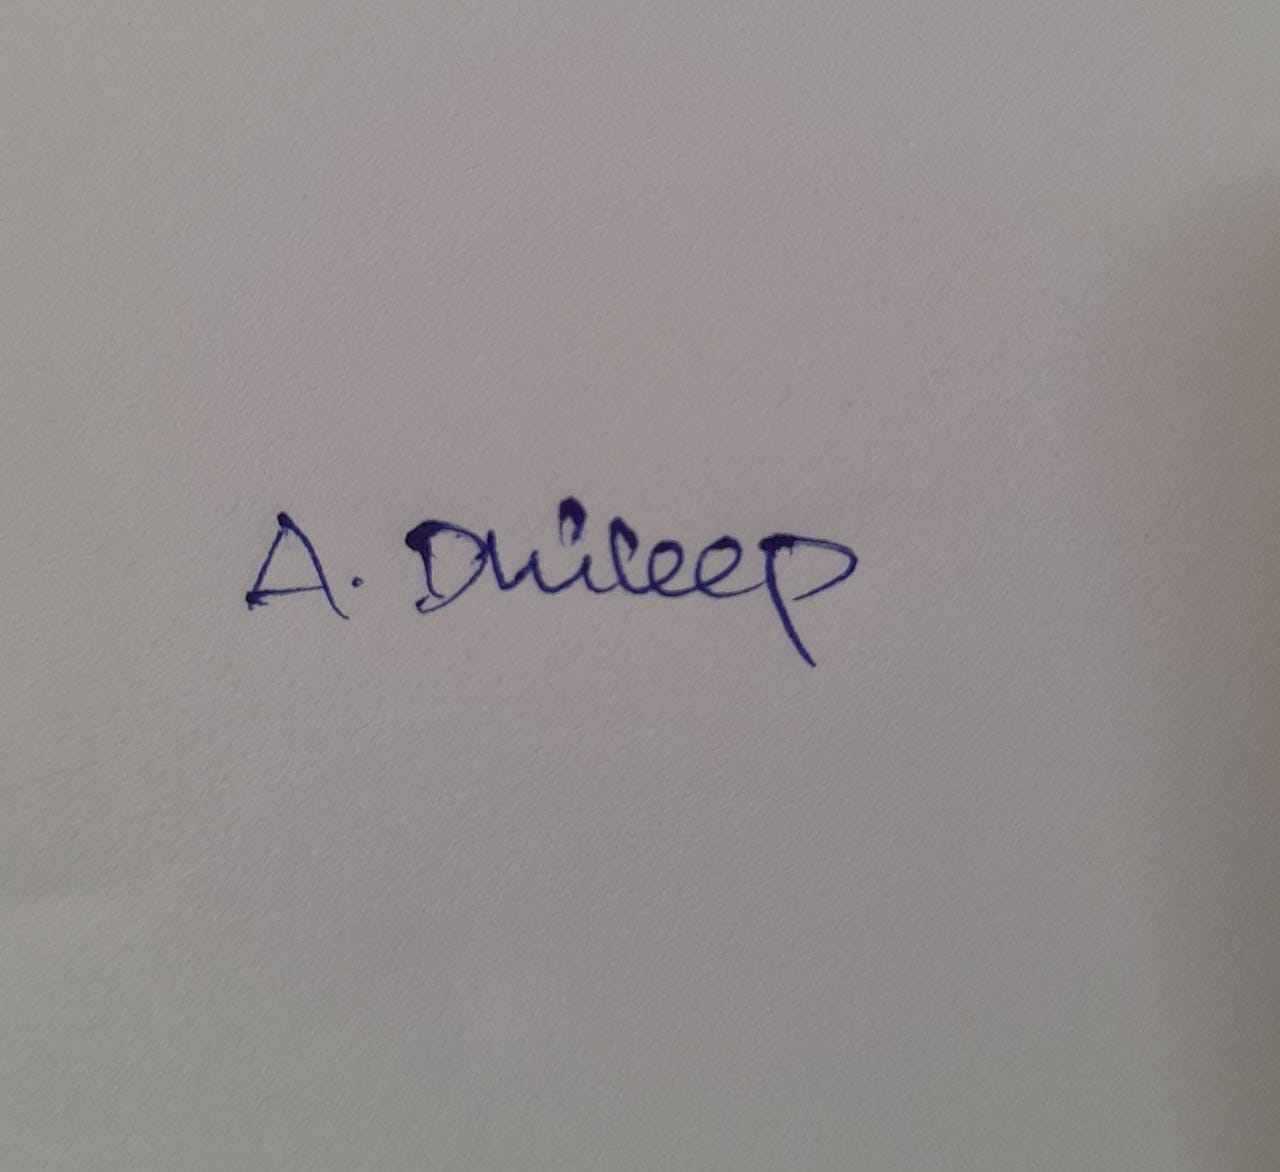 A. Dhileep